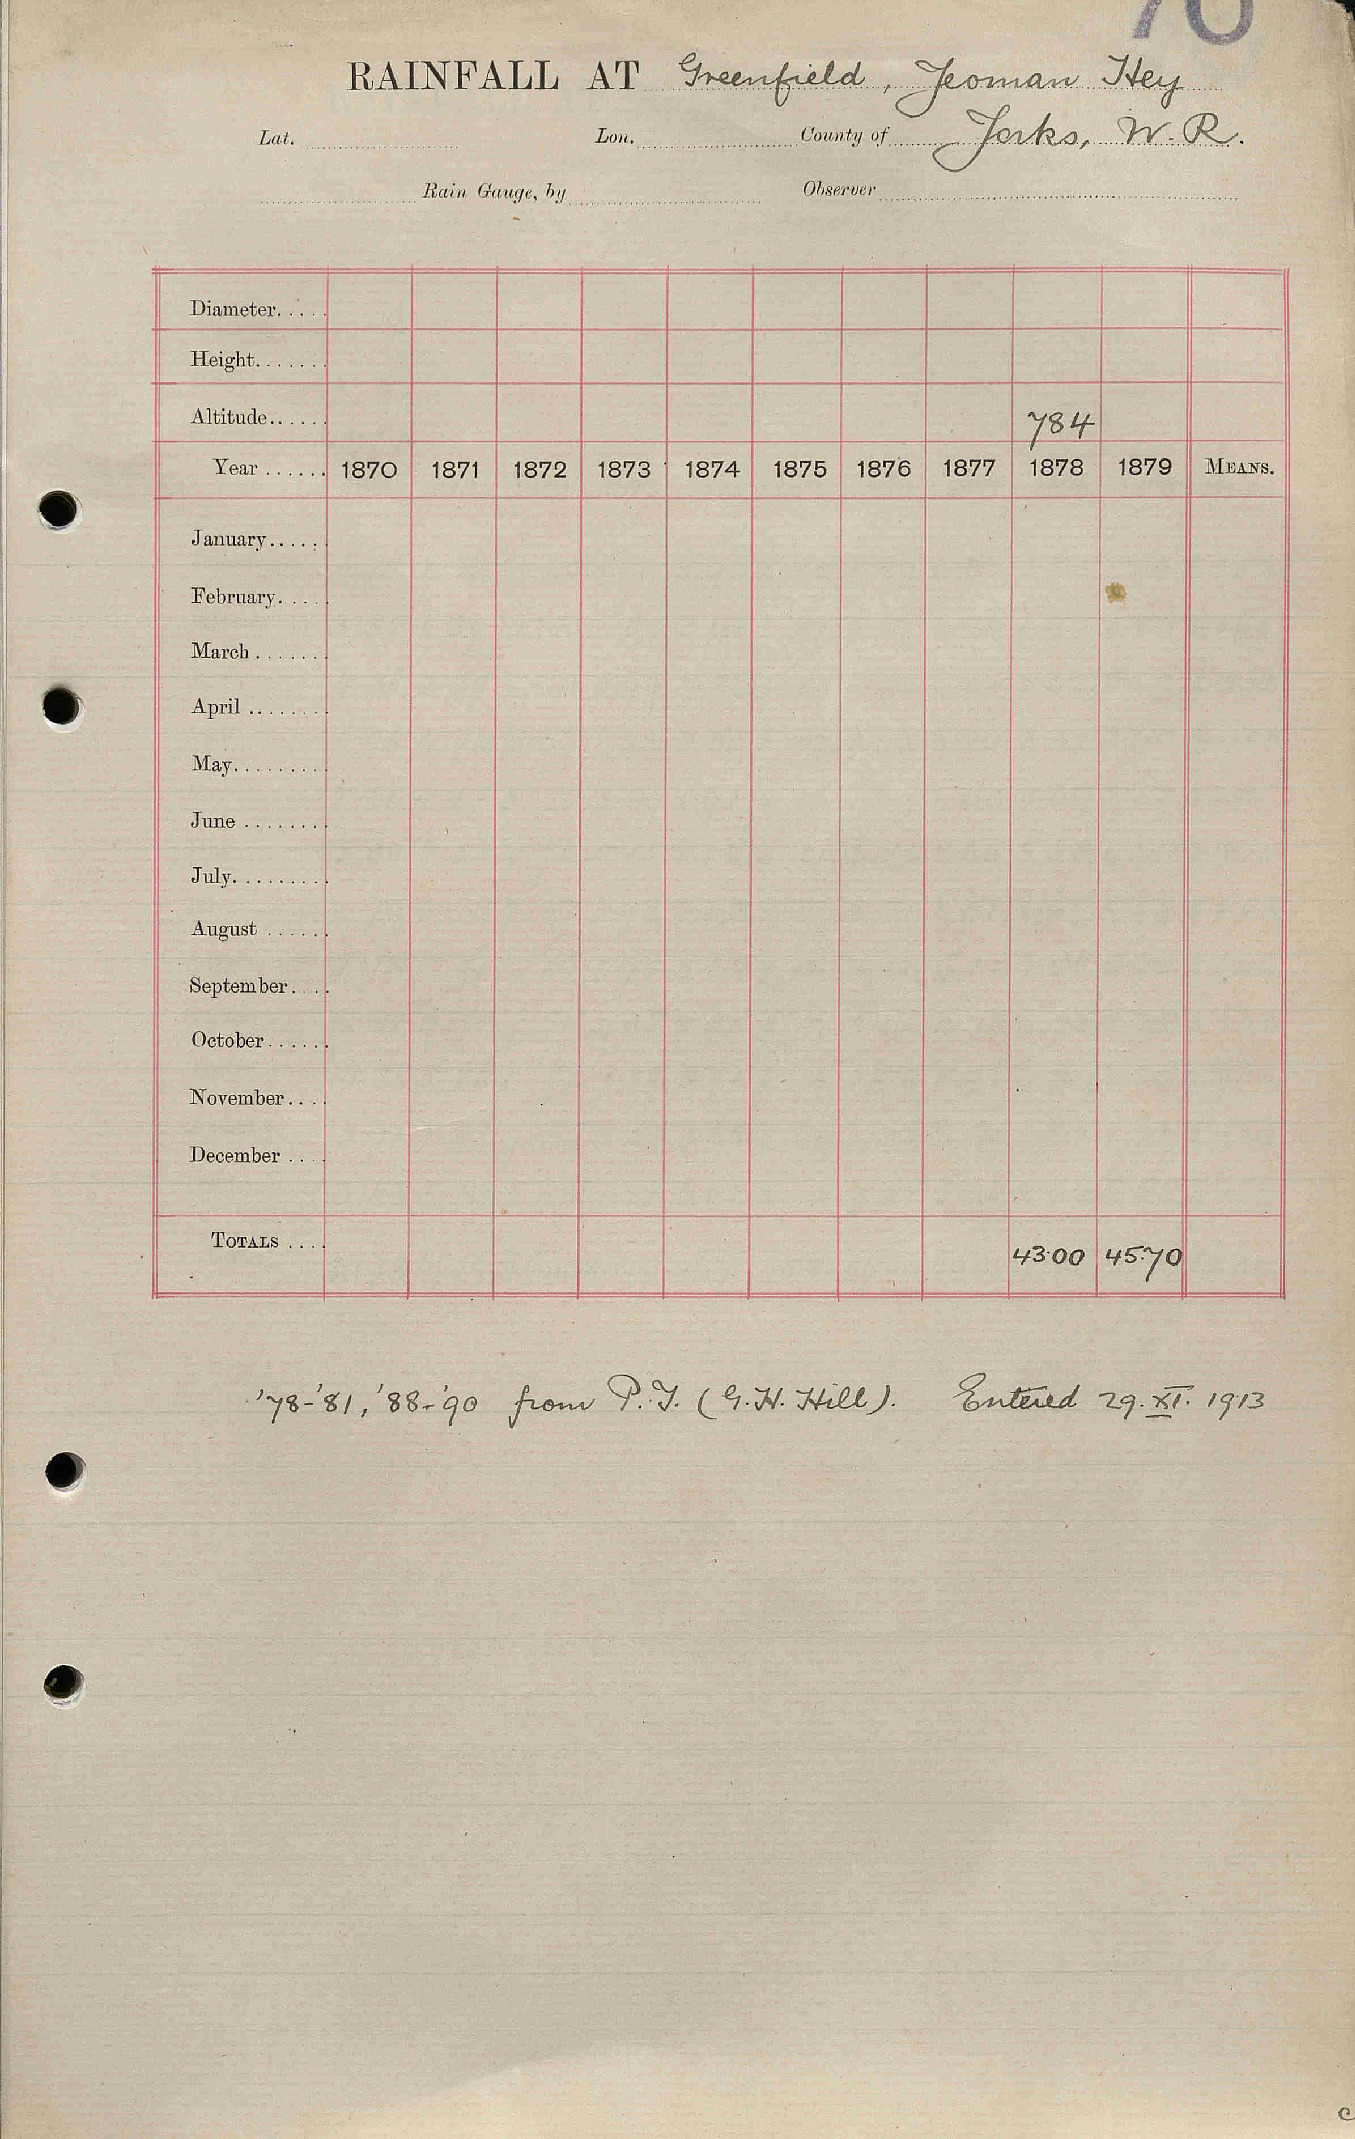 70
RAINFALL AT Greenfield, Yeoman Hey
Lat. Lon. County of Yorks, W. R.
Rain Gauge, by Observer
Diameter.....
Height.......
Altitude...... 784
Year ...... 1870 1871 1872 1873 1874 1875 1876 1877 1878 1879 MEANS.
January.....
February.....
March.......
April ........
May.........
June ........
July.........
August ......
September....
October......
November....
December ...
TOTALS .... 43·00 45·70
'78-'81, '88-'90 from P.I. (G.H. Hill). Entered 29.XI.1913
c